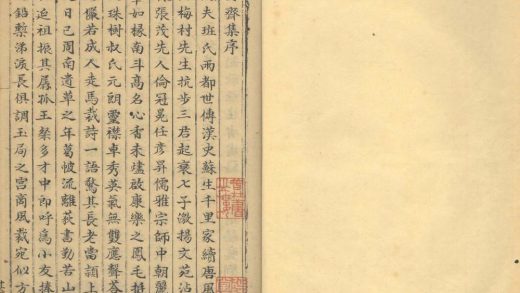 齋集序
夫班氏兩都世傳漢史蘇生千里家續唐風
梅村先生抗步三君起衰七子激揚文苑沾
張茂先人倫冠冕任彥昇儒雅宗師中朝
如椽南斗高名心香未燼啟康樂之鳳毛挺
珠樹叔氏元朗靈襟卓秀英氣無雙應聲答
儼若成人走馬裁詩一語驚其長老當頷上
日已周南遺草之年葛帔流離荻書勤苦山
近祖振其孱孤王粲多才中郎呼爲小友捧
鉛槧淚長俱調玉局之宮商風裁宛似方